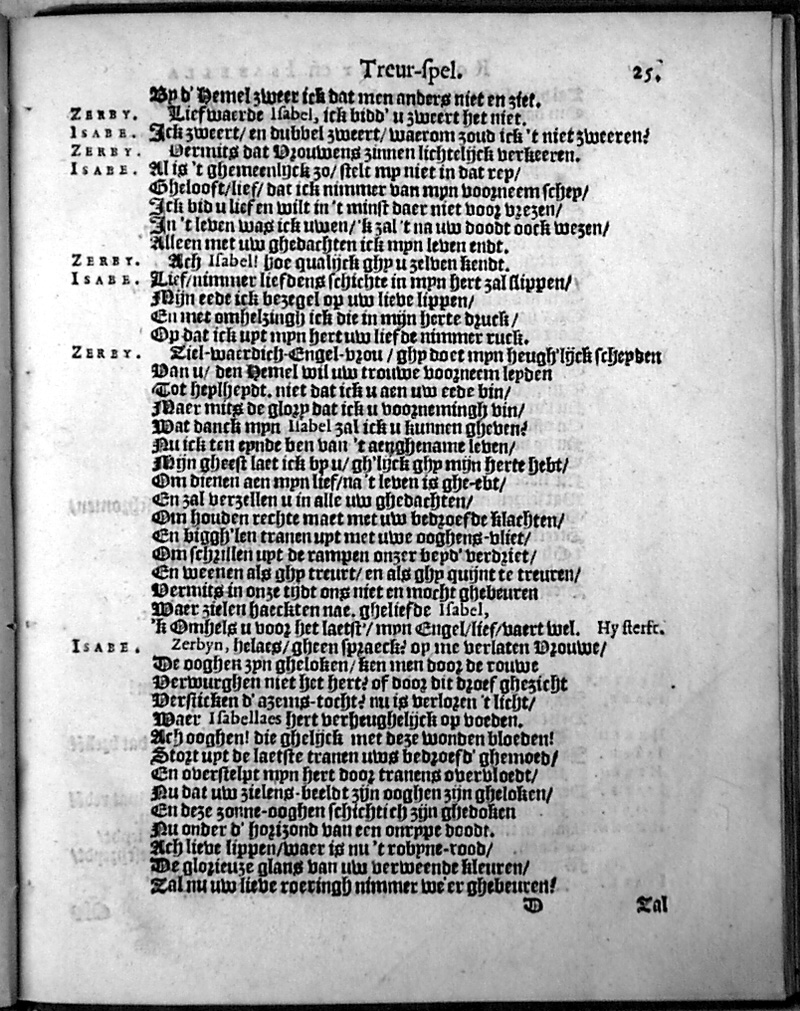 Treur-spel. 25.
By d' Hemel zweer ick dat men anders niet en ziet.
ZERBY. Liefwaerde Isabel, ick bidd' u zweert het niet.
ISABE. Ick zweert/ en dubbel zweert/ waerom zoud ick 't niet zweeren?
ZERBY. Vermits dat Vrouwens zinnen lichtelijck verkeeren.
ISABE. Al is 't ghemeenlijck zo/ stelt my niet in dat rep/
Ghelooft/lief/ dat ick nimmer van myn voorneem schep/
Ick bid u lief en wilt in 't minst daer niet voor vrezen/
In 't leven was ick uwen/ 'k zal 't na uw doodt oock wezen/
Alleen met uw ghedachten ick myn leven endt.
ZERBY. Ach Isabel! hoe qualijck ghy u zelven kendt.
ISABE. Lief/nimmer liefdens schichte in myn hert zal slippen/
Mijn eede ick bezegel op uw lieve lippen/
En met omhelzingh ick die in mijn herte druck/
Op dat ick uyt myn hert uw liefde nimmer ruck.
ZERBY. Ziel-waerdich-Engel-vrou/ ghy doet myn heugh'lijck scheyden
Van u/ den Hemel wil uw trouwe voorneem leyden
Tot heylheydt. niet dat ick u aen uw eede bin/
Maer mits de glory dat ick u voornemingh vin/
Wat danck myn Isabel zal ick u kunnen gheven?
Nu ick ten eynde ben van 't aenghename leven/
Mijn gheest laet ick by u/ gh'lijck ghy mijn herte hebt/
Om dienen aen myn lief/na 't leven is ghe-ebt/
En zal verzellen u in alle uw ghedachten/
Om houden rechte maet met uw bedroefde klachten/
En biggh'len tranen uyt met uwe ooghens-vliet/
Om schrillen uyt de rampen onzer beyd' verdriet/
En weenen als ghy treurt/ en als ghy quijnt te treuren/
Vermits in onze tijdt ons niet en mocht ghebeuren
Waer zielen haeckten nae. gheliefde Isabel,
'k Omhels u voor het laetst'/ myn Engel/lief/vaert wel. Hy sterft.
ISABE. Zerbyn, helaes/ gheen spraeck? op me verlaten Vrouwe/
De ooghen zyn gheloken/ ken men door de rouwe
Verwurghen niet het hert? of door dit droef ghezicht
Versticken d' azems-tocht? nu is verloren 't licht/
Waer Isabellaes hert verheughelijck op voeden.
Ach ooghen! die ghelijck met deze wonden bloeden!
Stort uyt de laetste tranen uws bedroefd' ghemoed/
En overstelpt myn hert door tranens overvloedt/
Nu dat uw zielens-beeldt zijn ooghen zijn gheloken/
En deze zonne-ooghen schichtich zijn ghedoken
Nu onder d' horizond van een onrype doodt.
Ach lieve lippen/waer is nu 't robyne-rood/
De glorieuze glans van uw verweende kleuren/
Zal nu uw lieve roeringh nimmer we'er ghebeuren?
D Zal